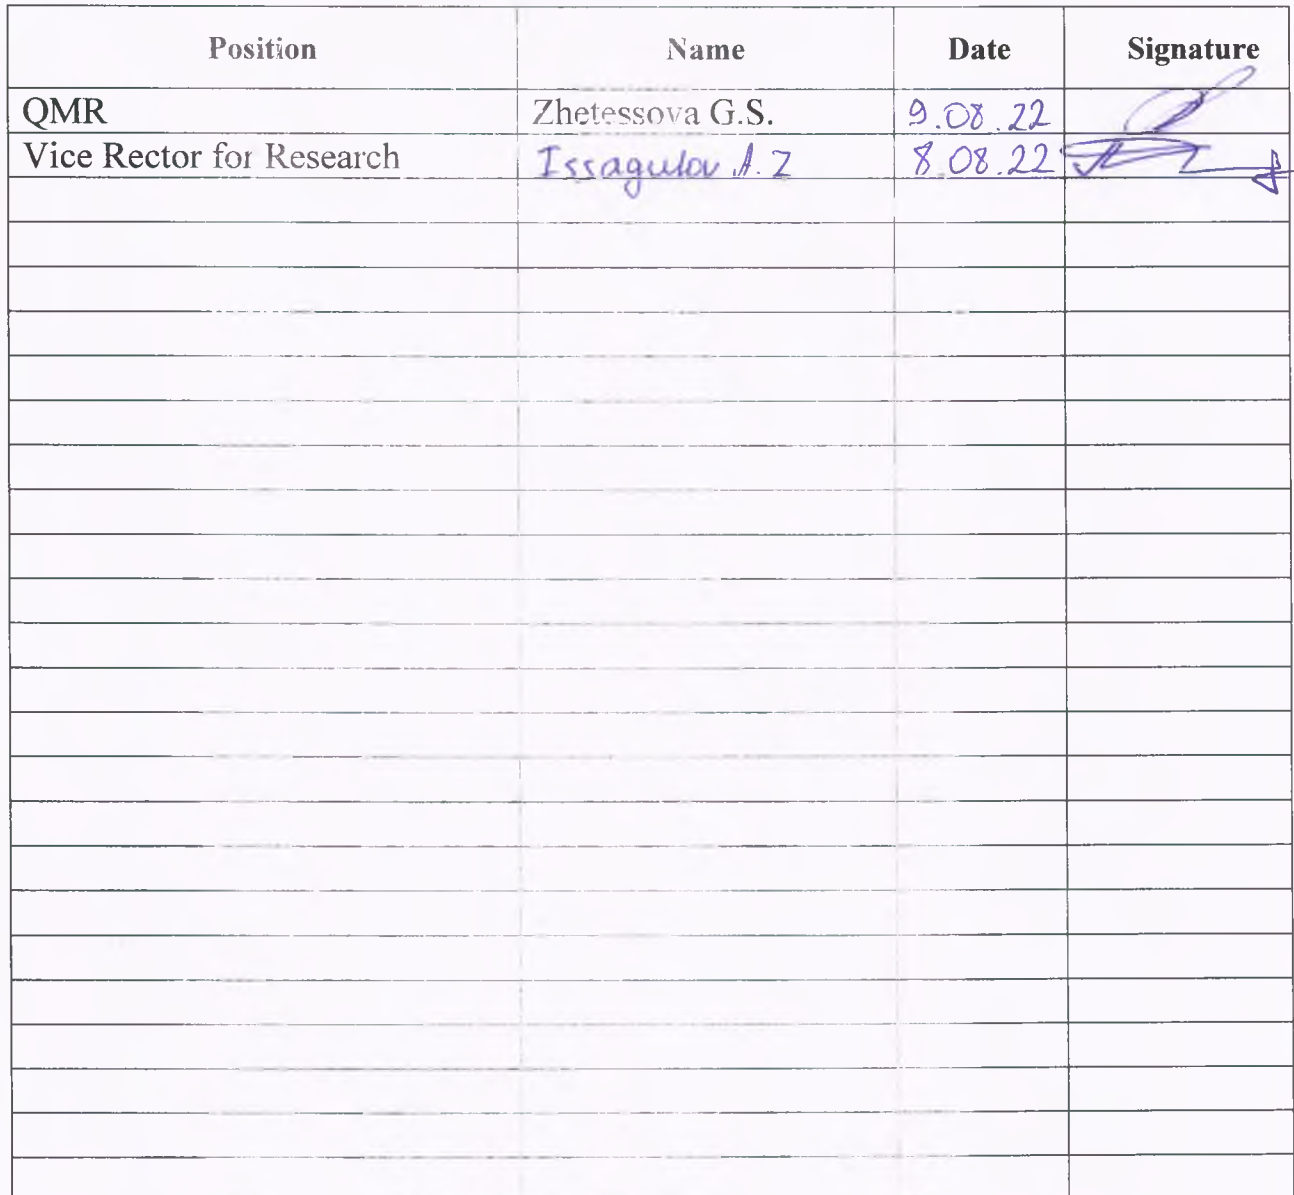 Position Name Date Signature
QMR Zhetessova G.S. 9.08.22
Vice Rector for Research Issagulov A.Z 8.08.22